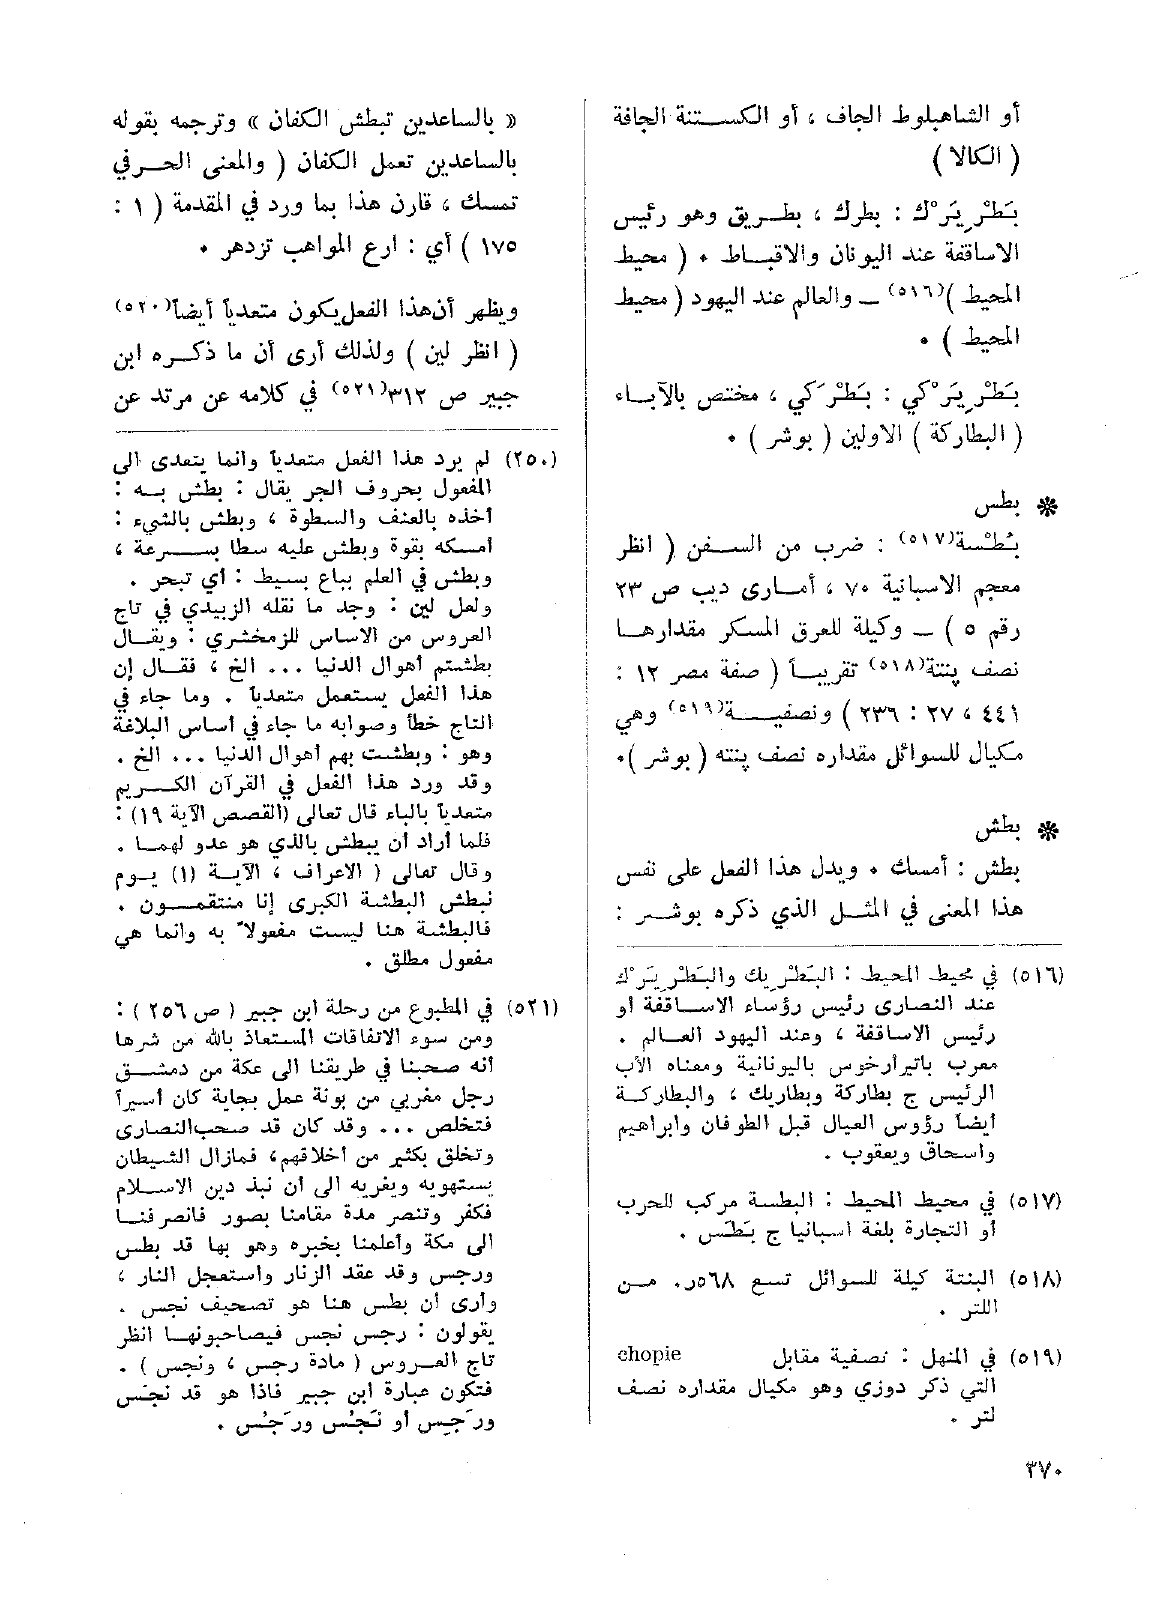 أو الشاهبلوط الجاف ، أو الكستنة الجافة
( الكالا )
بَطْرِيَرْك : بطرك ، بطريق وهو رئيس
الاساقفة عند اليونان والاقباط . ( محيط
المحيط )(٥١٦) ـ والعالم عند اليهود ( محيط
المحيط ) .
بَطْرِيَرْكي : بَطْرَكي ، مختص بالآباء
( البطاركة ) الاولين ( بوشر ) .
* بطس
بُطْسة(٥١٧) : ضرب من السفن ( انظر
معجم الاسبانية ٧٠ ، أماري ديب ص ٢٣
رقم ٥ ) ـ وكيلة للعرق المسكر مقدارها
نصف پنتة(٥١٨) تقريباً ( صفة مصر ١٢ :
٤٤١ ، ٢٧ : ٢٣٦ ) ونصفية(٥١٩) وهي
مكيال للسوائل مقداره نصف پنته ( بوشر ).
* بطش
بطش : أمسك . ويدل هذا الفعل على نفس
هذا المعنى في المثل الذي ذكره بوشر :
(٥١٦) في محيط المحيط : البَطْرِيك والبَطْرِيَرْك
عند النصارى رئيس رؤساء الاساقفة أو
رئيس الاساقفة ، وعند اليهود العالم .
معرب باتيرأرخوس باليونانية ومعناه الأب
الرئيس ج بطاركة وبطاريك ، والبطاركة
أيضاً رؤوس العيال قبل الطوفان وابراهيم
واسحاق ويعقوب .
(٥١٧) في محيط المحيط : البطسة مركب للحرب
أو التجارة بلغة اسبانيا ج بَطَس .
(٥١٨) البنتة كيلة للسوائل تسع ٥٦٨ر. من
اللتر .
(٥١٩) في المنهل : نصفية مقابل chopie
التي ذكر دوزي وهو مكيال مقداره نصف
لتر .
« بالساعدين تبطش الكفان » وترجمه بقوله
بالساعدين تعمل الكفان ( والمعنى الحرفي
تمسك ، قارن هذا بما ورد في المقدمة ( ١ :
١٧٥ ) أي : ارع المواهب تزدهر .
ويظهر أن هذا الفعل يكون متعدياً أيضاً(٥٢٠)
( انظر لين ) ولذلك أرى أن ما ذكره ابن
جبير ص ٣١٢(٥٢١) في كلامه عن مرتد عن
(٢٥٠) لم يرد هذا الفعل متعدياً وانما يتعدى الى
المفعول بحروف الجر يقال : بطش به :
أخذه بالعنف والسطوة ، وبطش بالشيء :
أمسكه بقوة وبطش عليه سطا بسرعة ،
وبطش في العلم بباع بسيط : أي تبحر .
ولعل لين : وجد ما نقله الزبيدي في تاج
العروس من الاساس للزمخشري : ويقال
بطشتم أهوال الدنيا ... الخ ، فقال إن
هذا الفعل يستعمل متعدياً . وما جاء في
التاج خطأ وصوابه ما جاء في أساس البلاغة
وهو : وبطشت بهم أهوال الدنيا ... الخ .
وقد ورد هذا الفعل في القرآن الكريم
متعدياً بالباء قال تعالى (القصص الآية ١٩) :
فلما أراد أن يبطش بالذي هو عدو لهما .
وقال تعالى ( الاعراف ، الآية (١) يوم
نبطش البطشة الكبرى إنا منتقمون .
فالبطشة هنا ليست مفعولاً به وانما هي
مفعول مطلق .
(٥٢١) في المطبوع من رحلة ابن جبير ( ص ٢٥٦ ) :
ومن سوء الاتفاقات المستعاذ بالله من شرها
أنه صحبنا في طريقنا الى عكة من دمشق
رجل مغربي من بونة عمل بجاية كان أسيراً
فتخلص ... وقد كان قد صحب النصارى
وتخلق بكثير من أخلاقهم، فمازال الشيطان
يستهويه ويغريه الى أن نبذ دين الاسلام
فكفر وتنصر مدة مقامنا بصور فانصرفنا
الى مكة وأعلمنا بخبره وهو بها قد بطس
ورجس وقد عقد الزنار واستعجل النار ،
وأرى أن بطس هنا هو تصحيف نجس .
يقولون : رجس نجس فيصاحبونها انظر
تاج العروس ( مادة رجس ، ونجس ) .
فتكون عبارة ابن جبير فاذا هو قد نجَس
ورَجِس أو نَجُس ورَجُس .
٣٧٠